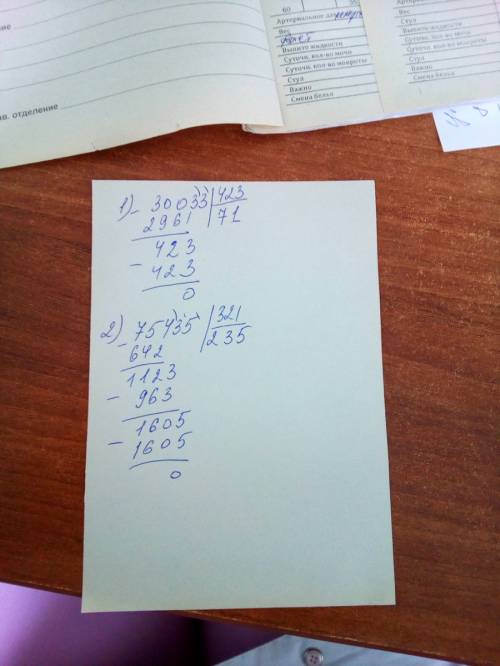 60
Артериальное
Вес
Выпито жидкости
Суточн. кол-во мочи
Суточн. кол-во мокроты
Стул
Важно
Смена белья
Вес
Стул
Выпито жидкости
Суточн. кол-во мочи
Суточн. кол-во мокроты
Стул
Важно
Смена белья
ав. отделение
1) 30033 | 423
- 2961 | 71
423
- 423
0
2) 75435 | 321
- 642 | 235
1123
- 963
1605
- 1605
0